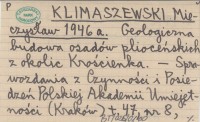 P
KLIMASZEWSKI Mie-
czysław 1946a. Geologiczna
budowa osadów plioceńskich
z okolic Krościenka. — Spra-
wozdania z Czynności i Posie-
dzeń Polskiej Akademii Umiejęt-
ności (Kraków) t. 47, nr 8,